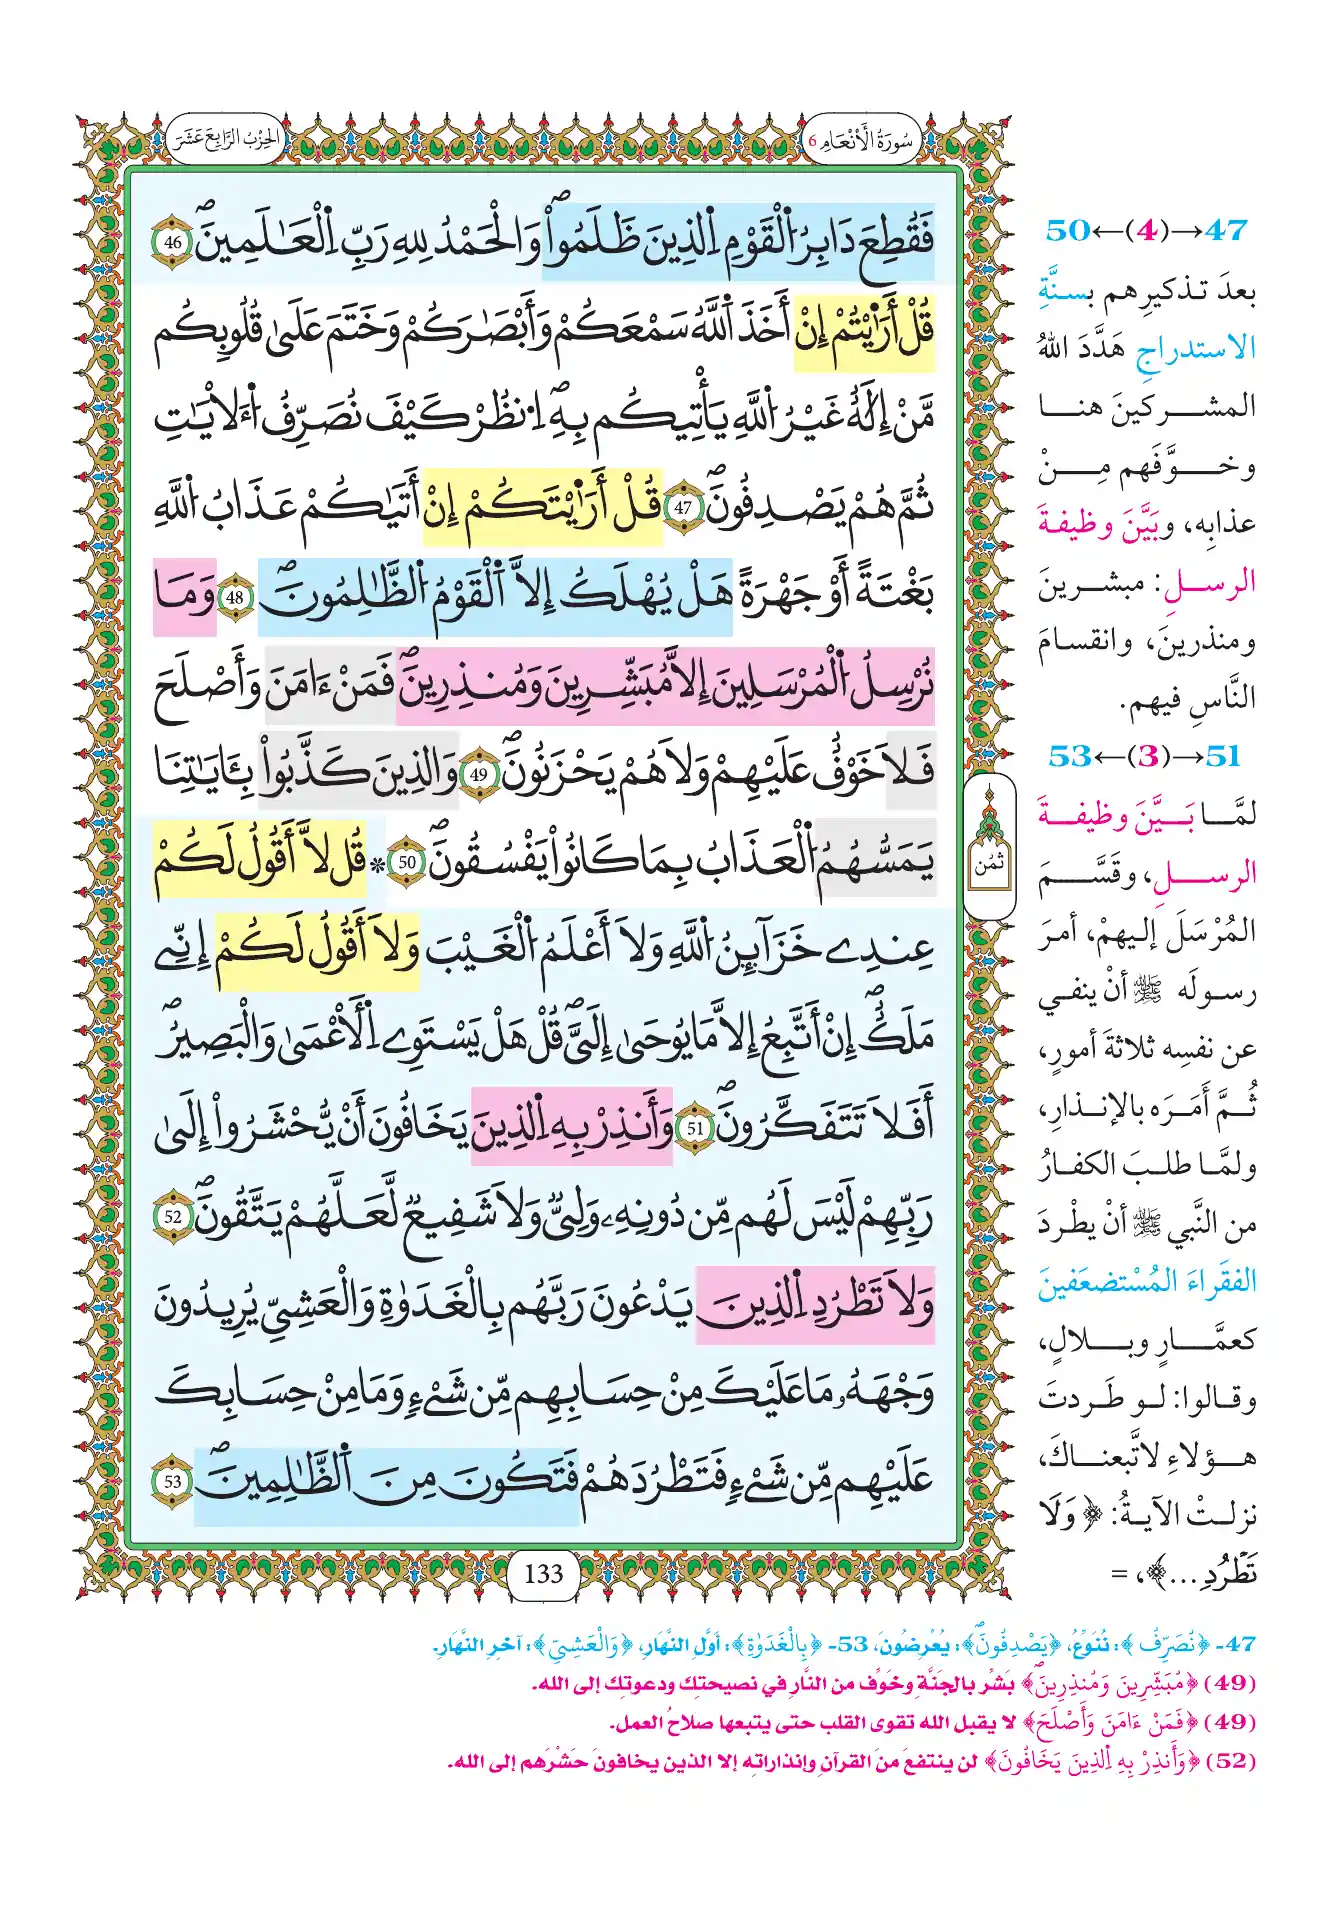 سُورَةُ الْأَنْعَامِ 6
الحِزْبُ الرَّابِعَ عَشَرَ
فَقُطِعَ دَابِرُ اُ۬لْقَوْمِ اِ۬لذِينَ ظَلَمُواْۖ وَالْحَمْدُ لِلهِ رَبِّ اِ۬لْعَٰلَمِينَۖ 46
قُلْ أَرَٰيْتُمْ إِنْ أَخَذَ اَ۬للَّهُ سَمْعَكُمْ وَأَبْصَٰرَكُمْ وَخَتَمَ عَلَىٰ قُلُوبِكُم
مَّنْ إِلَٰهٌ غَيْرُ اُ۬للَّهِ يَأْتِيكُم بِهِۖ اِ۟نظُرْ كَيْفَ نُصَرِّفُ اُ۬ءَلَايَٰتِ
ثُمَّ هُمْ يَصْدِفُونَۖ 47 قُلْ أَرَٰيْتَكُمْ إِنْ أَتَيٰكُمْ عَذَابُ اُ۬للَّهِ
بَغْتَةً أَوْ جَهْرَةً هَلْ يُهْلَكُ إِلاَّ اَ۬لْقَوْمُ اُ۬لظَّٰلِمُونَۖ 48 وَمَا
نُرْسِلُ اُ۬لْمُرْسَلِينَ إِلاَّ مُبَشِّرِينَ وَمُنذِرِينَۖ فَمَنْ ءَامَنَ وَأَصْلَحَ
فَلَا خَوْفٌ عَلَيْهِمْ وَلَا هُمْ يَحْزَنُونَۖ 49 وَالذِينَ كَذَّبُواْ بِـَٔايَٰتِنَا
يَمَسُّهُمُ اُ۬لْعَذَابُ بِمَا كَانُواْ يَفْسُقُونَۖ 50 * قُل لَّا أَقُولُ لَكُمْ
عِندِے خَزَآئِنُ اُ۬للَّهِ وَلَا أَعْلَمُ اُ۬لْغَيْبَ وَلَا أَقُولُ لَكُمْ إِنِّے
مَلَكٌۖ اِنْ أَتَّبِعُ إِلاَّ مَا يُوحَىٰ إِلَىَّۖ قُلْ هَلْ يَسْتَوِے اِ۬لْأَعْمَىٰ وَالْبَصِيرُۖ
أَفَلَا تَتَفَكَّرُونَۖ 51 وَأَنذِرْ بِهِ اِ۬لذِينَ يَخَافُونَ أَنْ يُّحْشَرُواْ إِلَىٰ
رَبِّهِمْ لَيْسَ لَهُم مِّن دُونِهِۦ وَلِيٌّ وَلَا شَفِيعٌ لَّعَلَّهُمْ يَتَّقُونَۖ 52
وَلَا تَطْرُدِ اِ۬لذِينَ يَدْعُونَ رَبَّهُم بِالْغَدَوٰةِ وَالْعَشِيِّ يُرِيدُونَ
وَجْهَهُۥ مَا عَلَيْكَ مِنْ حِسَابِهِم مِّن شَےْءٍ وَمَا مِنْ حِسَابِكَ
عَلَيْهِم مِّن شَےْءٍ فَتَطْرُدَهُمْ فَتَكُونَ مِنَ اَ۬لظَّٰلِمِينَۖ 53
ثُمُن
133
47→(4)←50
بعدَ تذكيرِهم بسنَّةِ
الاستدراجِ هَدَّدَ اللهُ
المشركينَ هنا
وخوَّفَهم مِنْ
عذابِه، وبَيَّنَ وظيفةَ
الرسلِ: مبشرينَ
ومنذرينَ، وانقسامَ
النَّاسِ فيهم.
51→(3)←53
لمَّا بَيَّنَ وظيفةَ
الرسلِ، وقَسَّمَ
المُرْسَلَ إليهمْ، أمرَ
رسولَه ﷺ أنْ ينفي
عن نفسِه ثلاثةَ أمورٍ،
ثُمَّ أَمَرَه بالإنذارِ،
ولمَّا طلبَ الكفارُ
من النَّبي ﷺ أنْ يطْردَ
الفقراءَ المُسْتضعَفينَ
كعمَّارٍ وبلالٍ،
وقالوا: لو طَردتَ
هؤلاءِ لاتَّبعناكَ،
نزلتْ الآيةُ: ﴿وَلَا
تَطْرُدِ ...﴾، =
47- ﴿نُصَرِّفُ﴾: نُنَوِّعُ، ﴿يَصْدِفُونَۖ﴾: يُعْرِضُونَ، 53- ﴿بِالْغَدَوٰةِ﴾: أوَّلِ النَّهَارِ، ﴿وَالْعَشِيِّ﴾: آخرِ النَّهَارِ.
(49) ﴿مُبَشِّرِينَ وَمُنذِرِينَۖ﴾ بَشِّر بالجَنَّةِ وخَوِّف من النَّارِ في نصيحتِك ودعوتِك إلى الله.
(49) ﴿فَمَنْ ءَامَنَ وَأَصْلَحَ﴾ لا يقبل الله تقوى القلب حتى يتبعها صلاحُ العمل.
(52) ﴿وَأَنذِرْ بِهِ اِ۬لذِينَ يَخَافُونَ﴾ لن ينتفعَ منَ القرآنِ وإنذاراتِه إلا الذين يخافونَ حَشْرَهم إلى الله.